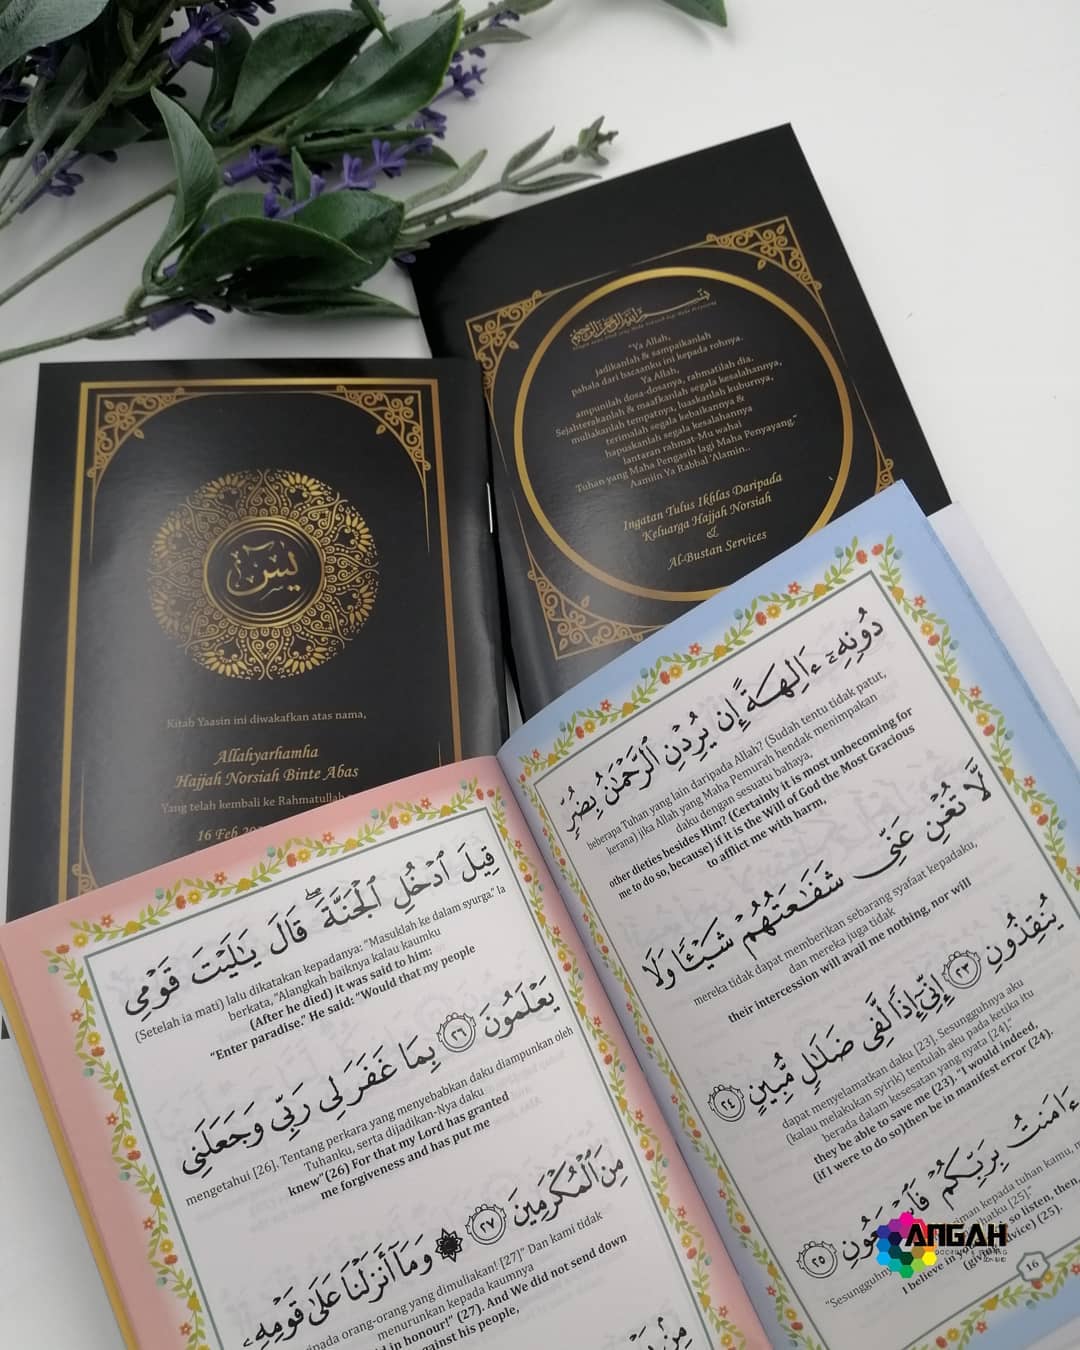 يس
Kitab Yaasin ini diwakafkan atas nama,
Allahyarhamha
Hajjah Norsiah Binte Abas
Yang telah kembali ke Rahmatullah
16 Feb
"Ya Allah,
jadikanlah & sampaikanlah
pahala dari bacaanku ini kepada rohnya.
Ya Allah,
ampunilah dosa-dosanya, rahmatilah dia,
Sejahterakanlah & maafkanlah segala kesalahannya,
muliakanlah tempatnya, luaskanlah kuburnya,
terimalah segala kebaikannya &
hapuskanlah segala kesalahannya
lantaran rahmat-Mu wahai
Tuhan yang Maha Pengasih lagi Maha Penyayang."
Aamiin Ya Rabbal 'Alamin..
Ingatan Tulus Ikhlas Daripada
Keluarga Hajjah Norsiah
&
Al-Bustan Services
دُونِهِۦٓ ءَالِهَةً إِن يُرِدْنِ ٱلرَّحْمَٰنُ بِضُرٍّ
beberapa Tuhan yang lain daripada Allah? (Sudah tentu tidak patut,
kerana) jika Allah yang Maha Pemurah hendak menimpakan
daku dengan sesuatu bahaya,
other dieties besides Him? (Certainly it is most unbecoming for
me to do so, because) if it is the Will of God the Most Gracious
to afflict me with harm,
لَّا تُغْنِ عَنِّى شَفَٰعَتُهُمْ شَيْـًٔا وَلَا
mereka tidak dapat memberikan sebarang syafaat kepadaku,
dan mereka juga tidak
their intercession will avail me nothing, nor will
يُنقِذُونِ ٢٣ إِنِّىٓ إِذًا لَّفِى ضَلَٰلٍ مُّبِينٍ ٢٤
dapat menyelamatkan daku [23]. Sesungguhnya aku
(kalau melakukan syirik) tentulah aku pada ketika itu
berada dalam kesesatan yang nyata [24]."
they be able to save me (23). "I would indeed,
(if I were to do so)then be in manifest error (24).
ءَامَنتُ بِرَبِّكُمْ فَٱسْمَعُونِ ٢٥
"Sesungguhny iman kepada tuhan kamu,
hatku [25]."
I believe in y so listen, then,
(givin dvice) (25).
16
قِيلَ ٱدْخُلِ ٱلْجَنَّةَ ۖ قَالَ يَٰلَيْتَ قَوْمِى
(Setelah ia mati) lalu dikatakan kepadanya: "Masuklah ke dalam syurga." Ia
berkata, "Alangkah baiknya kalau kaumku
(After he died) it was said to him:
"Enter paradise." He said: "Would that my people
يَعْلَمُونَ ٢٦ بِمَا غَفَرَ لِى رَبِّى وَجَعَلَنِى
mengetahui [26]. Tentang perkara yang menyebabkan daku diampunkan oleh
Tuhanku, serta dijadikan-Nya daku
knew"(26) For that my Lord has granted
me forgiveness and has put me
مِنَ ٱلْمُكْرَمِينَ ٢٧ وَمَآ أَنزَلْنَا عَلَىٰ قَوْمِهِۦ
ripada orang-orang yang dimuliakan! [27]" Dan kami tidak
menurunkan kepada kaumnya
d in honour!" (27). And We did not send down
against his people,
ANGAH